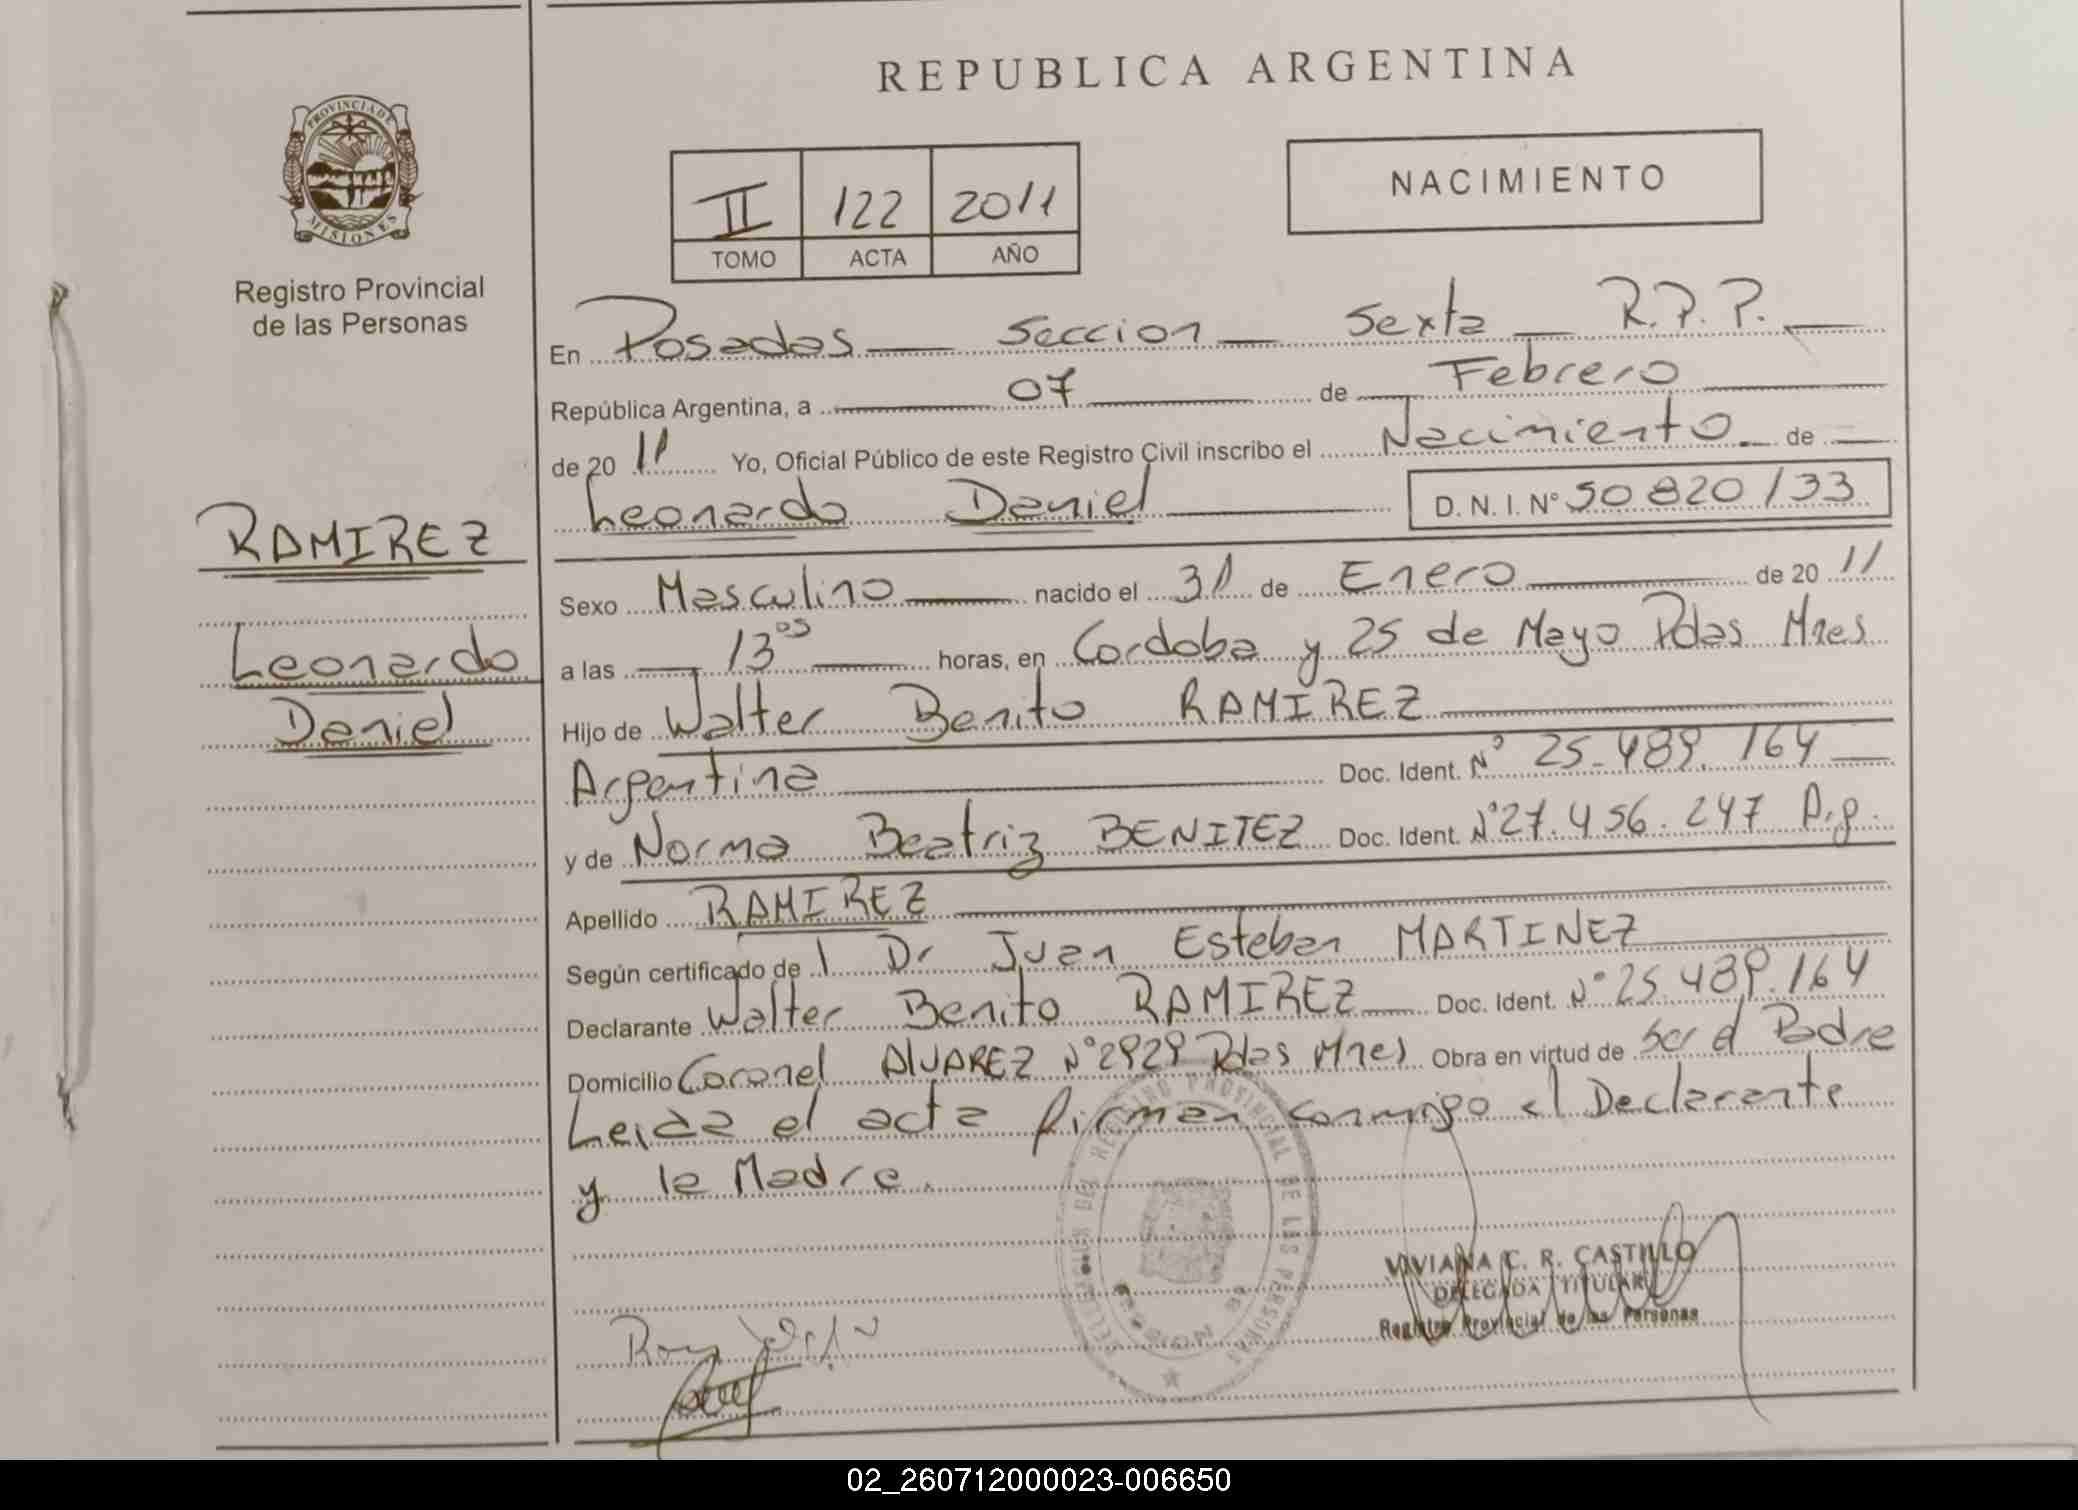 REPUBLICA ARGENTINA
PROVINCIA DE
MISIONES
Registro Provincial
de las Personas
II 122 2011
TOMO ACTA AÑO
NACIMIENTO
En Posadas Seccion Sexta R.P.P.
República Argentina, a 07 de Febrero
de 2011 Yo, Oficial Público de este Registro Civil inscribo el Nacimiento de
Leonardo Daniel D. N. I. N° 50 820 133
RAMIREZ
Leonardo
Daniel
Sexo Masculino nacido el 31 de Enero de 2011
a las 13 05 horas, en Cordoba y 25 de Mayo Pdas Mnes
Hijo de Walter Benito RAMIREZ
Argentina Doc. Ident. N° 25.489.164
y de Norma Beatriz BENITEZ Doc. Ident. N° 27.456.247 Arg.
Apellido RAMIREZ
Según certificado de l Dr Juan Esteban MARTINEZ
Declarante Walter Benito RAMIREZ Doc. Ident. N° 25.489.164
Domicilio Coronel ALVAREZ N° 2929 Pdas Mnes Obra en virtud de ser el Padre
Leida el acta firman conmigo el Declarante
y la Madre.
DELEGACION DEL REGISTRO PROVINCIAL DE LAS PERSONAS
VIVIANA C. R. CASTILLO
DELEGADA TITULAR
Registro Provincial de las Personas
02_260712000023-006650